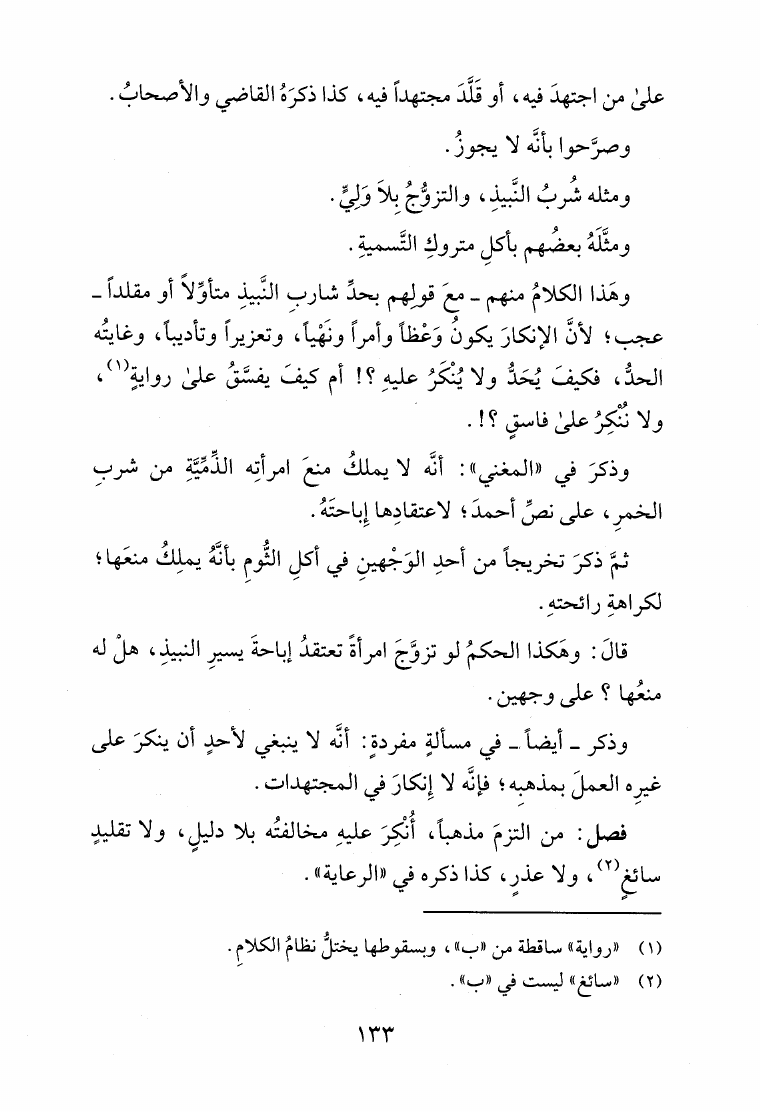 علىٰ من اجتهدَ فيه، أو قَلَّدَ مجتهداً فيه، كذا ذكرَهُ القاضي والأصحابُ.
وصرَّحوا بأنَّه لا يجوزُ.
ومثله شُربُ النَّبيذِ، والتزوُّجُ بِلاَ وَلِيٍّ.
ومثَّلَهُ بعضُهم بأكلِ متروكِ التَّسميةِ.
وهَذا الكلامُ منهم - معَ قولِهم بحدِّ شاربِ النَّبيذِ متأوِّلاً أو مقلداً -
عجب؛ لأنَّ الإنكارَ يكونُ وَعْظاً وأمراً ونَهْياً، وتعزيراً وتأديباً، وغايتُه
الحدُّ، فكيفَ يُحَدُّ ولا يُنْكَرُ عليهِ؟! أم كيفَ يفسَّقُ علىٰ روايةٍ(١)،
ولا نُنْكِرُ علىٰ فاسقٍ؟!.
وذكرَ في «المغني»: أنَّه لا يملكُ منعَ امرأتِه الذِّمِّيَّةِ من شربِ
الخمرِ، على نصِّ أحمدَ؛ لاعتقادِها إِباحتَهُ.
ثمَّ ذكرَ تخريجاً من أحدِ الوَجْهينِ في أكلِ الثُّومِ بأنَّهُ يملِكُ منعَها؛
لكراهةِ رائحتهِ.
قالَ: وهَكذا الحكمُ لو تزوَّجَ امرأةً تعتقدُ إباحةَ يسيرِ النبيذِ، هلْ له
منعُها؟ على وجهين.
وذكر - أيضاً - في مسألةٍ مفردةٍ: أنَّه لا ينبغي لأحدٍ أن ينكرَ على
غيرِه العملَ بمذهبِه؛ فإنَّه لا إِنكارَ في المجتهدات.
فصل: من التزمَ مذهباً، أُنْكِرَ عليهِ مخالفتُه بلا دليلٍ، ولا تقليدٍ
سائغٍ(٢)، ولا عذرٍ، كذا ذكره في «الرعاية».
(١) «رواية» ساقطة من «ب»، وبسقوطها يختلُّ نظامُ الكلامِ.
(٢) «سائغ» ليست في «ب».
١٣٣